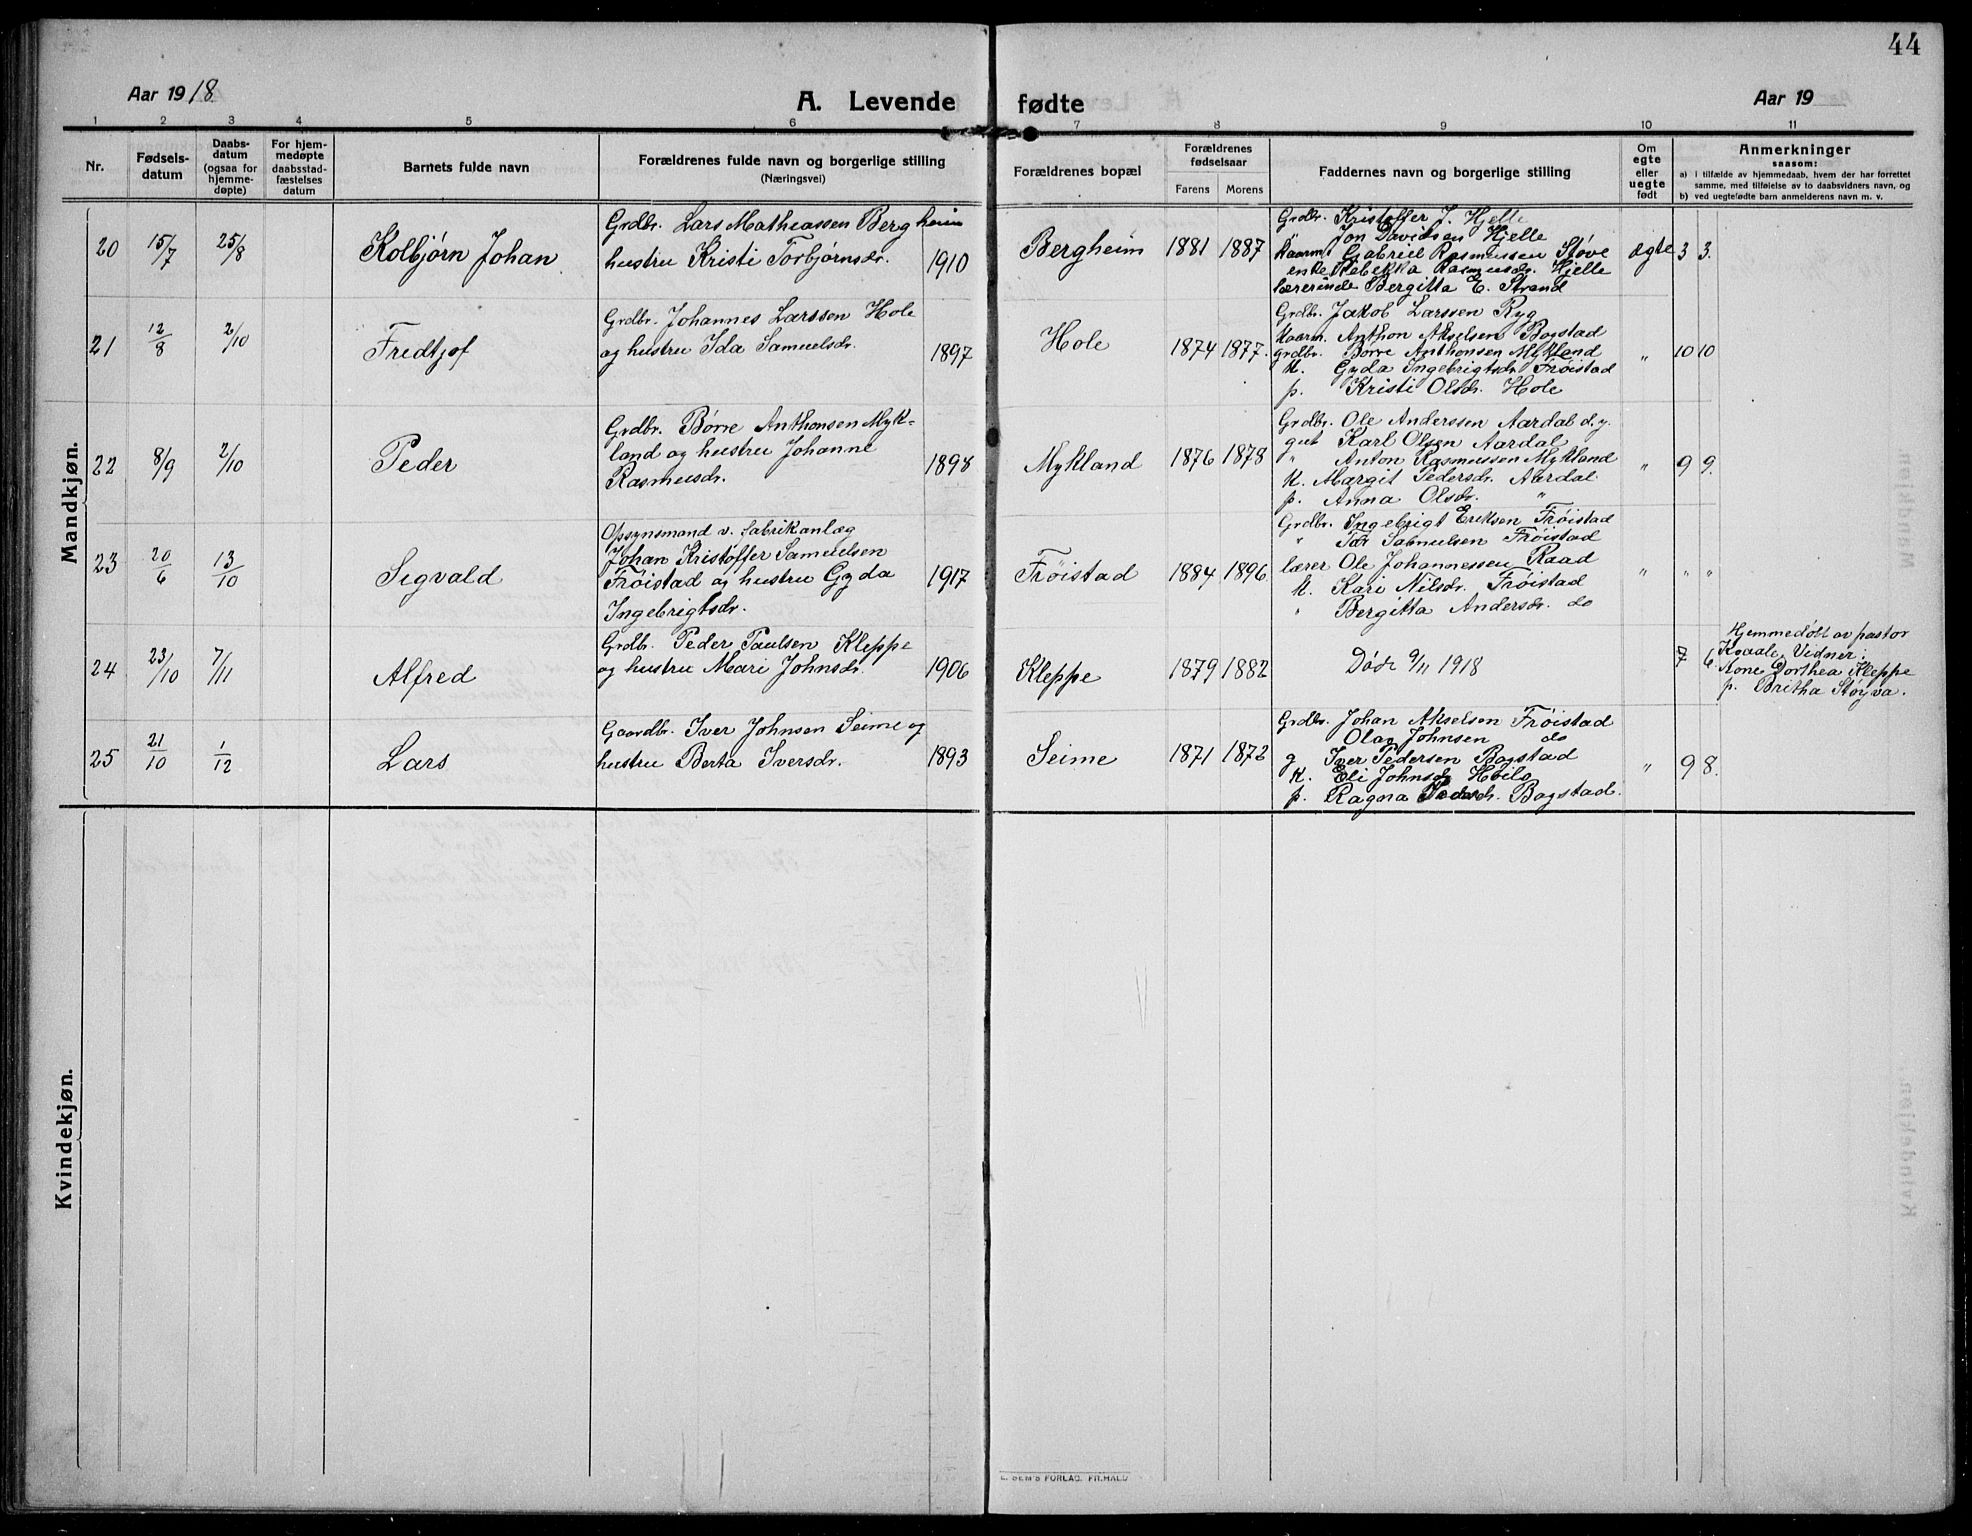 44
Aar 1918
A. Levende fødte
Aar 19
1 2 3 4 5 6 7 8 9 10 11
Nr.
Fødsels-
datum
Daabs-
datum
(ogsaa for
hjemme-
døpte)
For hjem-
medøpte
daabsstad-
fæstelses
datum
Barnets fulde navn
Forældrenes fulde navn og borgerlige stilling
(Næringsvei)
Forældrenes bopæl
Forældrenes
fødselsaar
Farens Morens
Faddernes navn og borgerlige stilling
Om
egte
eller
uegte
født
Anmerkninger
saasom:
a) i tilfælde av hjemmedaab, hvem der har forrettet
samme, med tilføielse av to daabsvidners navn, og
b) ved uegtefødte barn anmelderens navn m. v.
Mandkjøn.
20 15/7 25/8 Kolbjørn Johan
Grdbr. Lars Mathiassen Bergheim
hustru Kristi Torbjørnsdr. 1910
Bergheim 1881 1887
Grdbr. Kristoffer J. Hjelle
Jon Davidsen Hjelle
Kaarm. Gabriel Rasmussen Støve
enke Rebekka Rasmusdr. Hjelle
lærerinde Bergitta E. Strand
ægte 3 3.
21 12/8 2/10 Fredtjof
Grdbr. Johannes Larssen Hole
og hustru Ida Samuelsdr. 1897
Hole 1874 1877.
Grdbr. Jakob Larssen Ryg
Kaarm. Anthon Akselsen Bogstad
grdbr. Børre Anthonsen Mykland
k. Gyda Ingebrigtsdr. Frøistad
p. Kristi Olsdr. Hole
" 10 10
22 8/9 2/10 Peder
Grdbr. Børre Anthonsen Myk-
land og hustru Johanne
Rasmusdr. 1898
Mykland 1876 1878
Grdbr. Ole Anderssen Aardal d.y.
gut Karl Olsen Aardal
" Anton Rasmussen Mykland
k. Margit Pedersdr. Aardal
p. Anna Olsdr. "
" 9 9.
23 20/6 13/10 Sigvald
Opsynsmand v. fabrikanlæg
Johan Kristoffer Samuelsen
Frøistad og hustru Gyda
Ingebrigtsdr. 1917
Frøistad 1884 1896.
Grdbr. Ingebrigt Eriksen Frøistad
" Samuelsen Frøistad
lærer Ole Johannessen Raad
k. Kari Nilsdr. Frøistad
" Bergitta Andersdr. do
" " "
24 23/10 7/11 Alfred
Grdb. Peder Paulsen Kleppe
og hustru Mari Johnsdr. 1906
Kleppe 1879 1882
Død 9/11 1918
7 6
Hjemmedøbt av pastor
Kvaale, Vidner:
Ane Dorthea Kleppe
p. Britha Støyva.
25 21/10 1/12 Lars
Gaardbr. Iver Johnsen Seime og
hustru Berta Iversdr. 1893
Seime 1871 1872
Grdbr. Johan Akselsen Frøistad
Olav Johnsen do
g Iver Pedersen Bogstad
k. Eli Johnsdr
p. Ragna Pedersdr. Bogstad.
" 9 8.
Kvindekjøn.
E. SEM'S FORLAG. FR.HALD